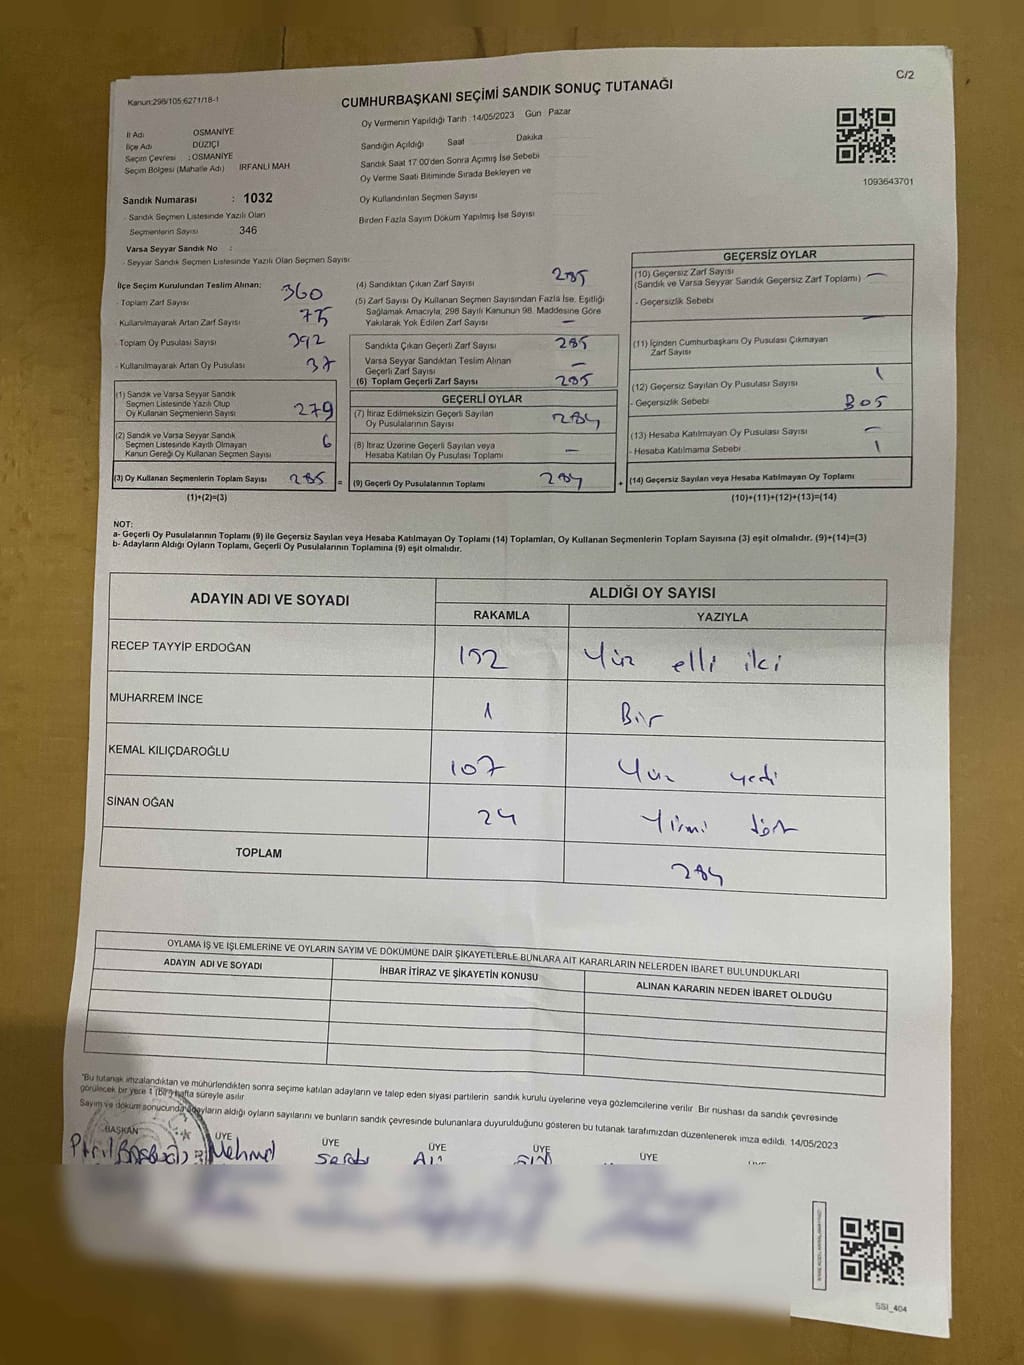 C/2
Kanun:298/105;6271/18-1
CUMHURBAŞKANI SEÇİMİ SANDIK SONUÇ TUTANAĞI
Oy Vermenin Yapıldığı Tarih :14/05/2023 Gün : Pazar
İl Adı OSMANİYE
İlçe Adı DÜZİÇİ
Seçim Çevresi : OSMANİYE
Seçim Bölgesi (Mahalle Adı) IRFANLI MAH
Sandığın Açıldığı Saat Dakika
Sandık Saat 17:00'den Sonra Açımış İse Sebebi
Oy Verme Saati Bitiminde Sırada Bekleyen ve
Oy Kullandırılan Seçmen Sayısı
Birden Fazla Sayım Döküm Yapılmış İse Sayısı
1093643701
Sandık Numarası : 1032
- Sandık Seçmen Listesinde Yazılı Olan
Seçmenlerin Sayısı 346
Varsa Seyyar Sandık No :
- Seyyar Sandık Seçmen Listesinde Yazılı Olan Seçmen Sayısı
İlçe Seçim Kurulundan Teslim Alınan:
- Toplam Zarf Sayısı 360
- Kullanılmayarak Artan Zarf Sayısı 75
- Toplam Oy Pusulası Sayısı 392
- Kullanılmayarak Artan Oy Pusulası 37
(1) Sandık ve Varsa Seyyar Sandık
Seçmen Listesinde Yazılı Olup
Oy Kullanan Seçmenlerin Sayısı 279
(2) Sandık ve Varsa Seyyar Sandık
Seçmen Listesinde Kayıtlı Olmayan
Kanun Gereği Oy Kullanan Seçmen Sayısı 6
(3) Oy Kullanan Seçmenlerin Toplam Sayısı 285 =
(1)+(2)=(3)
(4) Sandıktan Çıkan Zarf Sayısı 285
(5) Zarf Sayısı Oy Kullanan Seçmen Sayısından Fazla İse, Eşitliği
Sağlamak Amacıyla, 298 Sayılı Kanunun 98. Maddesine Göre
Yakılarak Yok Edilen Zarf Sayısı —
Sandıkta Çıkan Geçerli Zarf Sayısı 285
Varsa Seyyar Sandıktan Teslim Alınan
Geçerli Zarf Sayısı —
(6) Toplam Geçerli Zarf Sayısı 285
GEÇERLİ OYLAR
(7) İtiraz Edilmeksizin Geçerli Sayılan
Oy Pusulalarının Sayısı 284
(8) İtiraz Üzerine Geçerli Sayılan veya
Hesaba Katılan Oy Pusulası Toplamı —
(9) Geçerli Oy Pusulalarının Toplamı 284 +
GEÇERSİZ OYLAR
(10) Geçersiz Zarf Sayısı
(Sandık ve Varsa Seyyar Sandık Geçersiz Zarf Toplamı) —
- Geçersizlik Sebebi
(11) İçinden Cumhurbaşkanı Oy Pusulası Çıkmayan
Zarf Sayısı
(12) Geçersiz Sayılan Oy Pusulası Sayısı 1
- Geçersizlik Sebebi
(13) Hesaba Katılmayan Oy Pusulası Sayısı —
- Hesaba Katılmama Sebebi 1
(14) Geçersiz Sayılan veya Hesaba Katılmayan Oy Toplamı
(10)+(11)+(12)+(13)=(14)
NOT:
a- Geçerli Oy Pusulalarının Toplamı (9) ile Geçersiz Sayılan veya Hesaba Katılmayan Oy Toplamı (14) Toplamları, Oy Kullanan Seçmenlerin Toplam Sayısına (3) eşit olmalıdır. (9)+(14)=(3)
b- Adayların Aldığı Oyların Toplamı, Geçerli Oy Pusulalarının Toplamına (9) eşit olmalıdır.
ADAYIN ADI VE SOYADI ALDIĞI OY SAYISI
RAKAMLA YAZIYLA
RECEP TAYYİP ERDOĞAN 152 Yüz elli iki
MUHARREM İNCE 1 Bir
KEMAL KILIÇDAROĞLU 107 Yüz yedi
SİNAN OĞAN 24 Yirmi dört
TOPLAM 284
OYLAMA İŞ VE İŞLEMLERİNE VE OYLARIN SAYIM VE DÖKÜMÜNE DAİR ŞİKAYETLERLE BUNLARA AİT KARARLARIN NELERDEN İBARET BULUNDUKLARI
ADAYIN ADI VE SOYADI İHBAR İTİRAZ VE ŞİKAYETİN KONUSU ALINAN KARARIN NEDEN İBARET OLDUĞU
"Bu tutanak imzalandıktan ve mühürlendikten sonra seçime katılan adayların ve talep eden siyasi partilerin sandık kurulu üyelerine veya gözlemcilerine verilir. Bir nüshası da sandık çevresinde
görülecek bir yere 1 (bir) hafta süreyle asılır
Sayım ve döküm sonucunda adayların aldığı oyların sayılarını ve bunların sandık çevresinde bulunanlara duyurulduğunu gösteren bu tutanak tarafımızdan düzenlenerek imza edildi. 14/05/2023
BAŞKAN ÜYE ÜYE ÜYE ÜYE ÜYE
Mehmet
SSİ_404